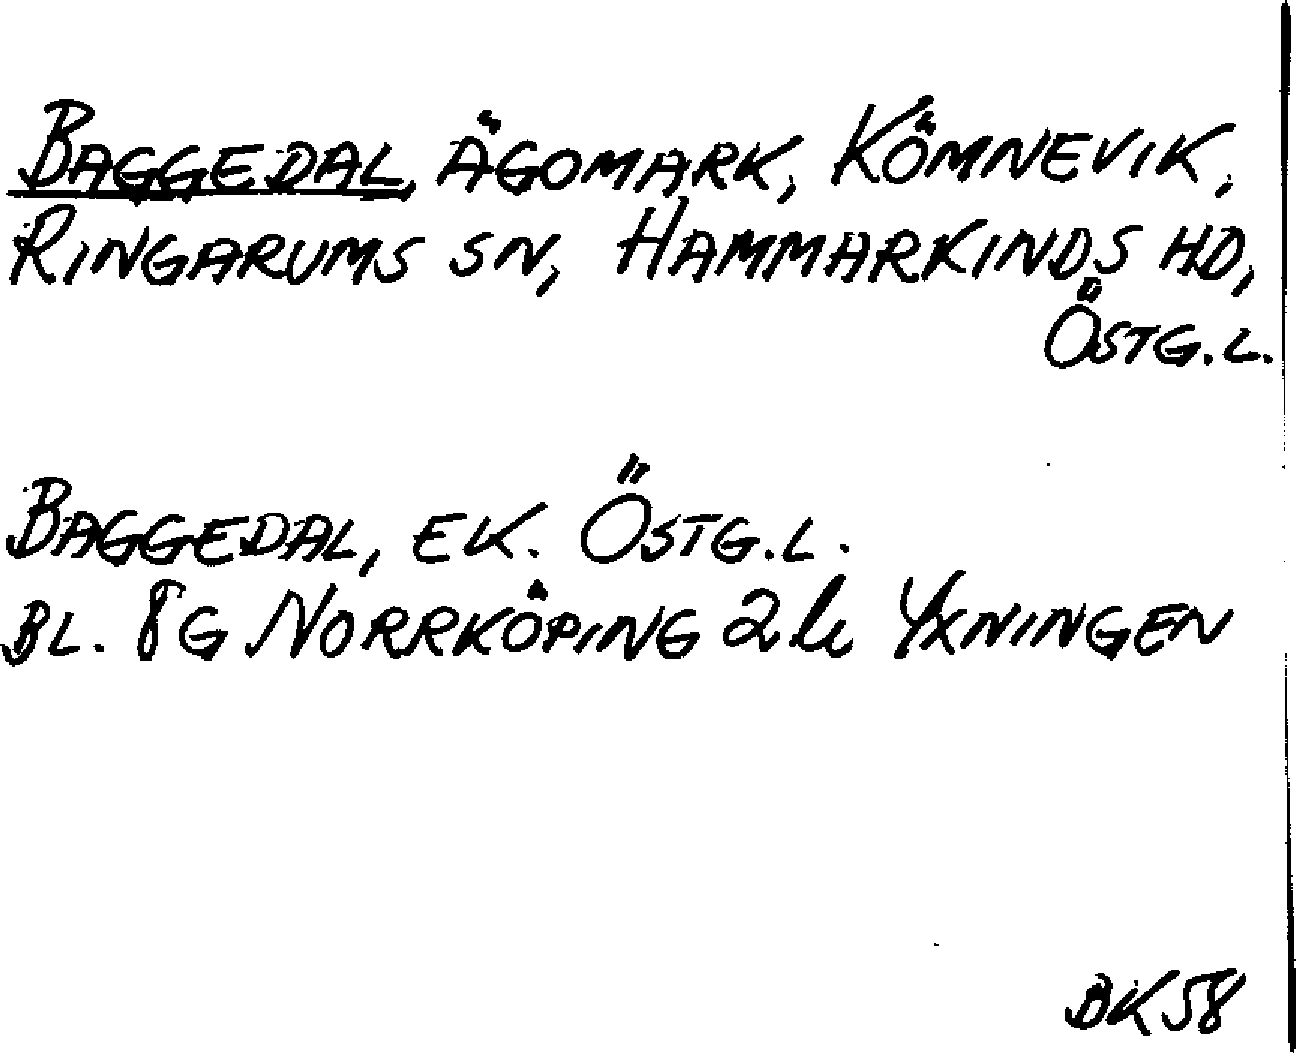 BAGGEDAL, ÄGOMARK, KÖMNEVIK,
RINGARUMS SN, HAMMARKINDS HD,
ÖSTG.L.
BAGGEDAL, EK. ÖSTG.L.
BL. 8G NORRKÖPING 2h YXNINGEN
BK58